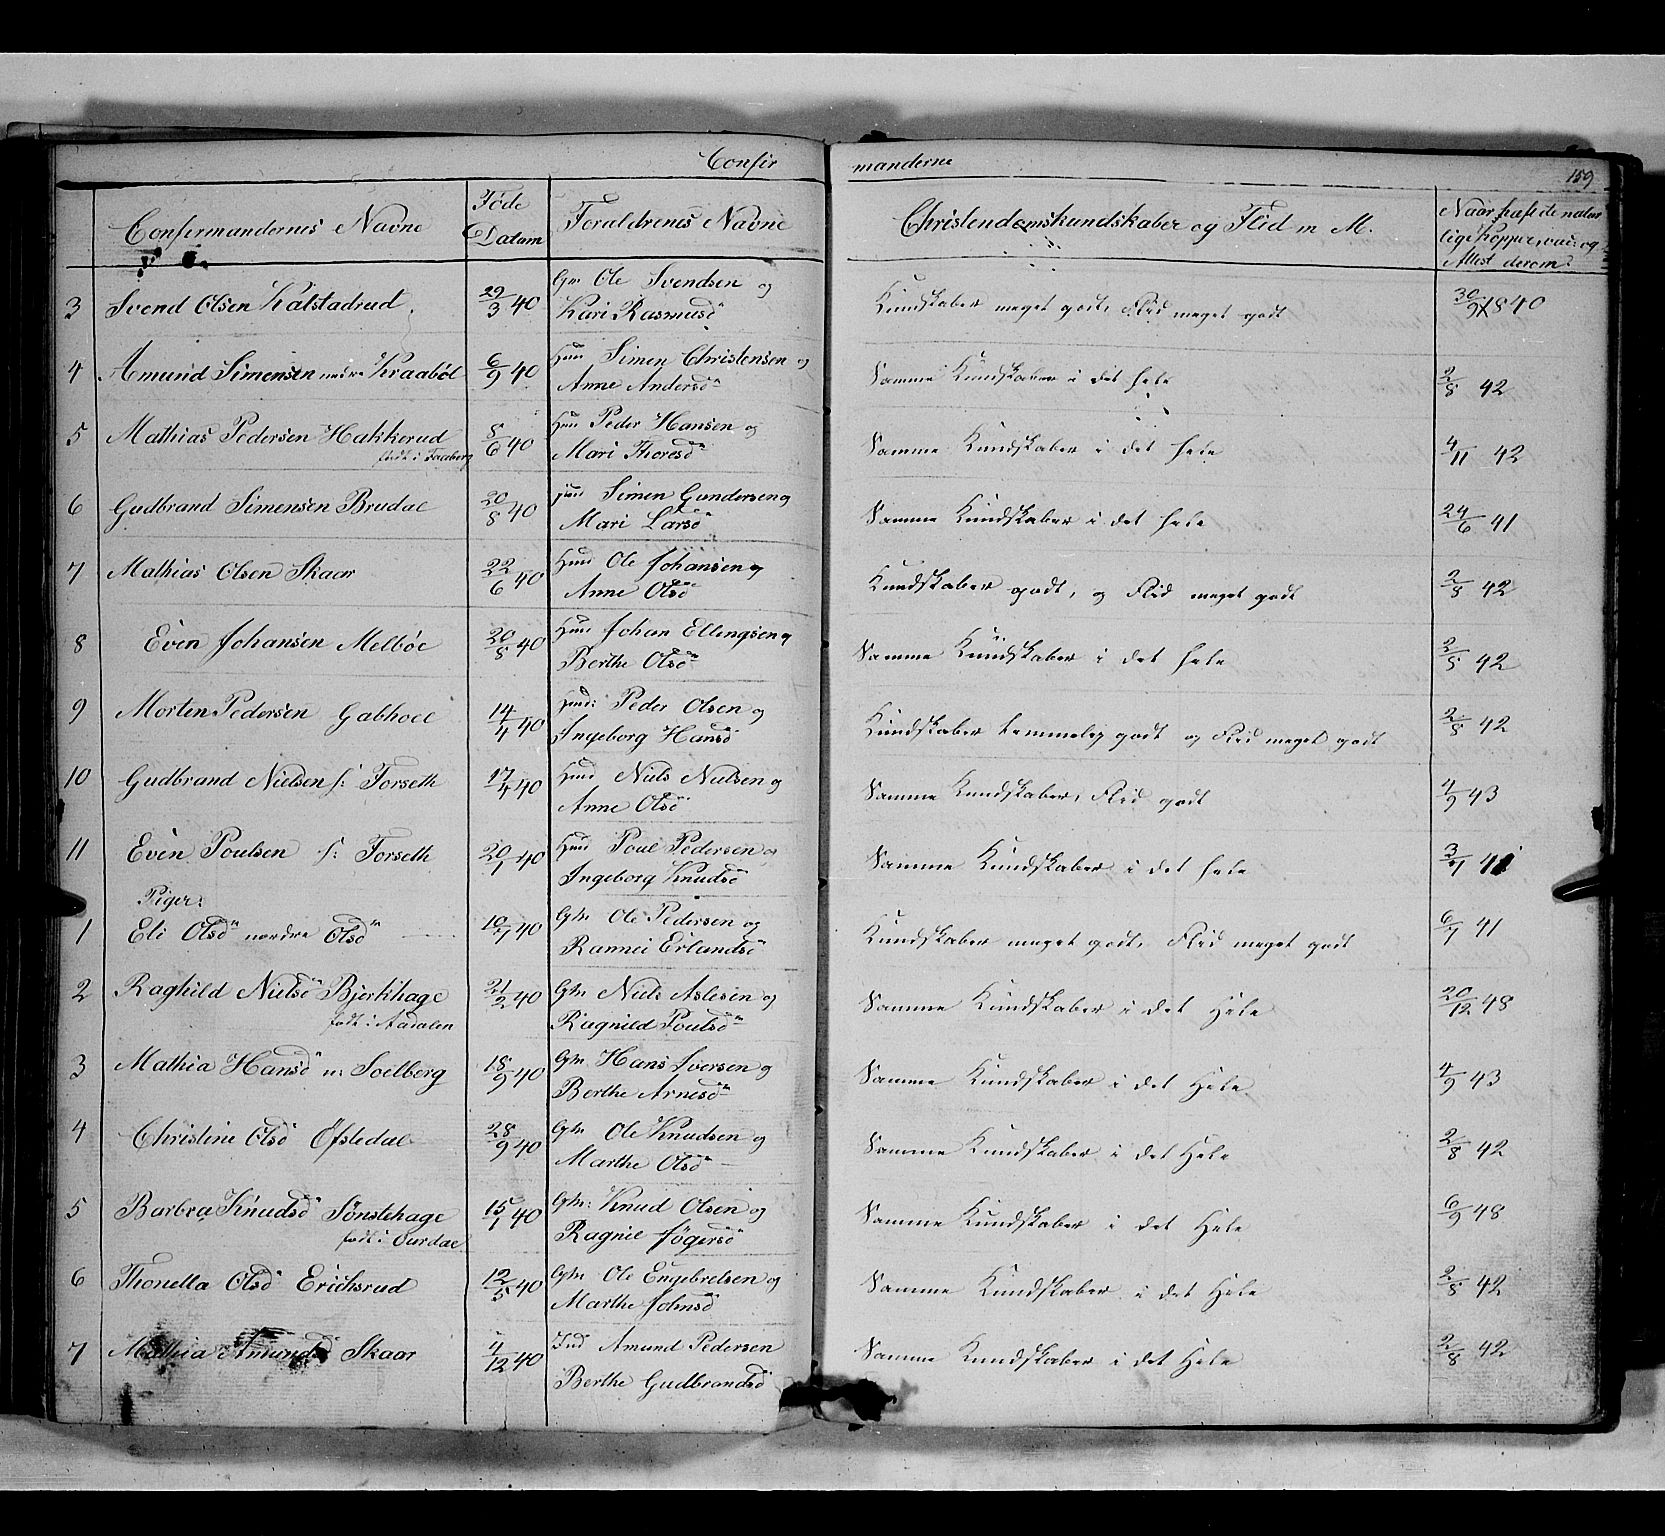 Confir manderne 159
Confirmandernes Navne Føde Datum Forældrenes Navne Christendomskundskaber og Flid m M. Naar hafte de naturlige Kopper, vac: og Attest derom.
3 Svend Olsen Kalstadrud 29/3 40 Gm Ole Svendsen og
Kari Rasmusdˢ Kundskaber meget godt, Flid meget godt 30/9 1840
4 Amund Simensen nedre Kraabøl 6/9 40 Huu Simen Christensen og
Anne Andersdˢ Samme Kundskaber i det hele 2/8 42
5 Mathias Pedersen Hakkerud 8/6 40 Huu Peder Hansen og
født i Faaberg Mari Thoresdˢ Samme Kundskaber i det hele 4/11 42
6 Gudbrand Simensen Brudal 20/8 40 Simen Gundersen og
Mari Larsdˢ Samme Kundskaber i det hele 24/6 41
7 Mathias Olsen Skaar 22/6 40 Huu Ole Johansen og
Anne Olsdˢ Kundskaber godt, og Flid meget godt 2/8 42
8 Even Johansen Melbøe 20/8 40 Huu Johan Ellingsen og
Berthe Olsdˢ Samme Kundskaber i det hele 2/8 42
9 Morten Pedersen Gabhoel 14/4 40 Huu: Peder Olsen og
Ingeborg Hansdˢ Kundskaber temmelig godt og Flid meget godt 2/8 42
10 Gudbrand Nielsen s: Forseth 17/4 40 Huu Niels Nielsen og
Anne Olsdˢ Samme Kundskaber, Flid godt 4/9 43
11 Even Poulsen s: Forseth 20/1 40 Huu Poul Pedersen og
Ingeborg Knudsdˢ Samme Kundskaber i det hele 3/7 41
Piger:
1 Eli Olsdˢ nordre Olsd 10/7 40 Gm Ole Pedersen og
Rannei Erlandsdˢ Kundskaber meget godt, Flid meget godt 6/7 41
2 Raghild Nielsdˢ Bjerkhage 21/2 40 Gm Niels Aslesen og
født i Aadalen Ragnild Poulsdˢ Samme Kundskaber i det Hele 20/12 48
3 Mathea Hansdˢ n: Soelberg 18/9 40 Gm Hans Iversen og
Berthe Arnesdˢ Samme Kundskaber i det Hele 4/9 43
4 Christine Olsdˢ Ofstedal 28/9 40 Gm Ole Knudsen og
Marthe Olsdˢ Samme Kundskaber i det Hele 2/8 42
5 Barbra Knudsdˢ Sønstehage 15/1 40 Gm: Knud Olsen og
født i Ourdal Ragnil Jøgersdˢ Samme Kundskaber i det Hele 6/9 48
6 Thonetta Olsdˢ Erichsrud 12/5 40 Gm Ole Engebretsen og
Marthe Johnsdˢ Samme Kundskaber i det Hele 2/8 42
7 Mathia Amundsdˢ Skaar 4/12 40 Ind Amund Pedersen
Berthe Gudbrandsdˢ Samme Kundskaber i det Hele 2/8 42